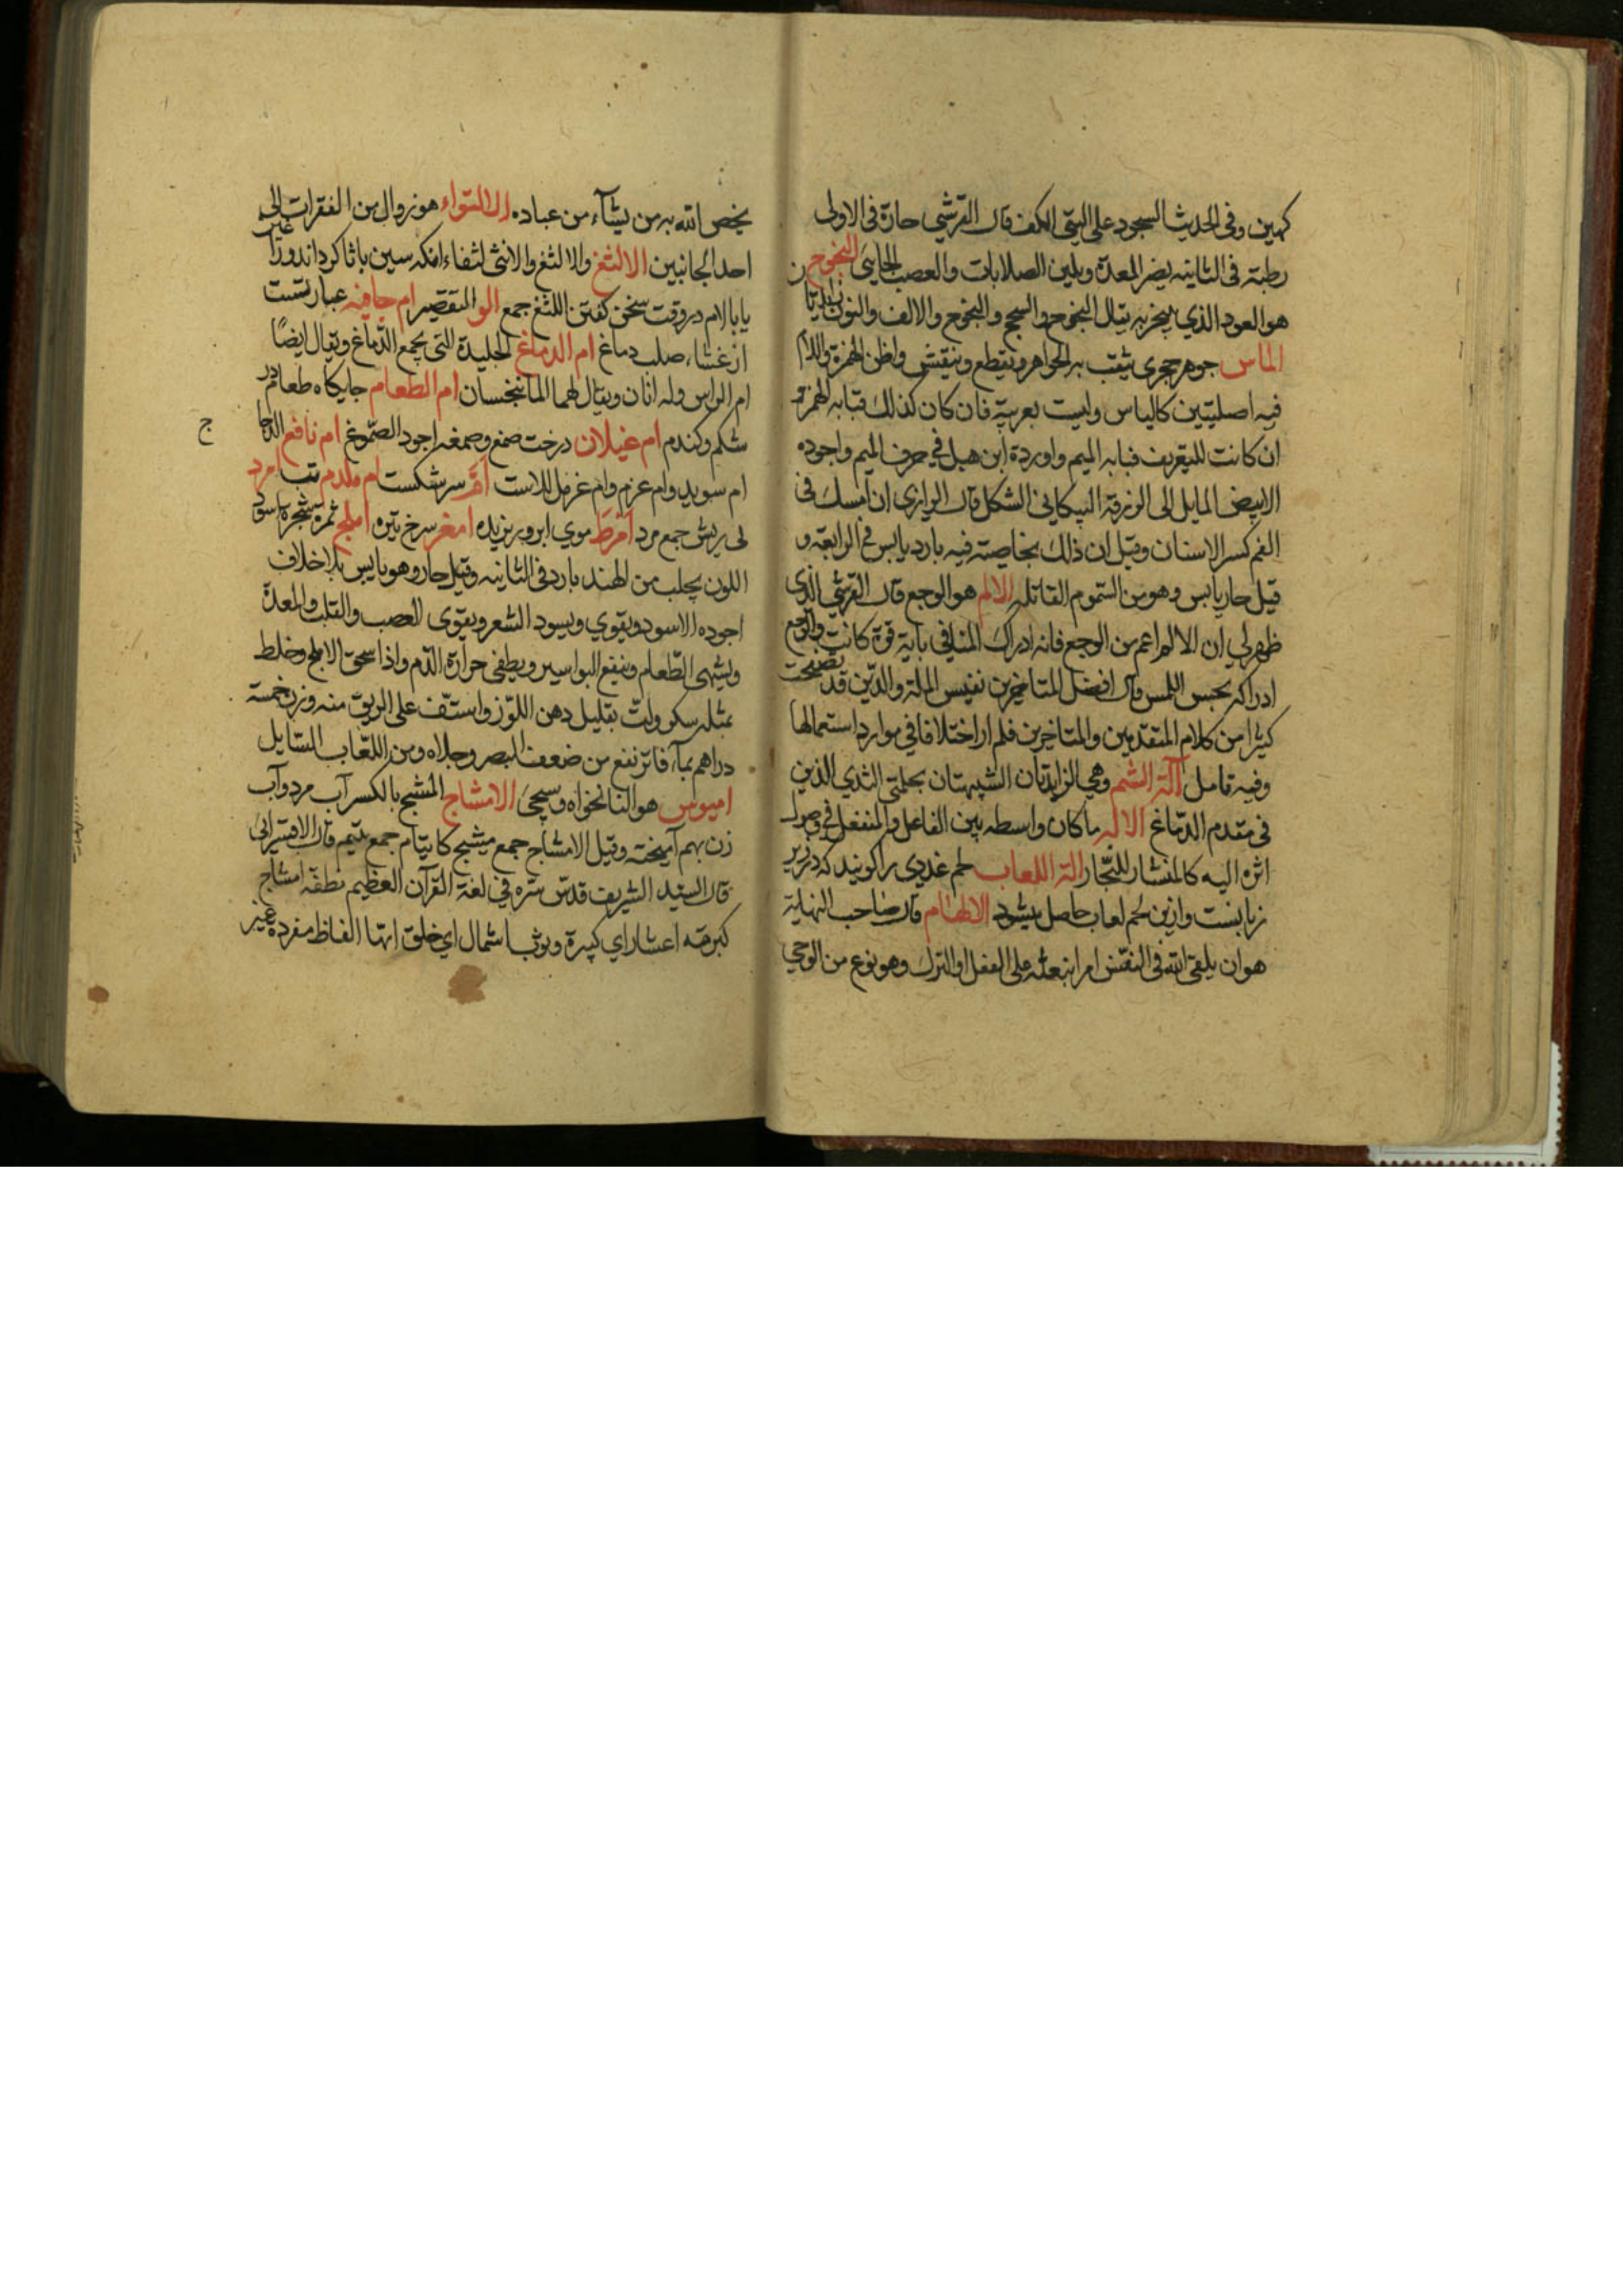 كهين وفى الحديث السجود على اليتى الكف قال القرشي حارة فى الاولى
رطبة فى الثانيه يضر المعدة ويلين الصلابات والعصب الجاسى النجوج
هو العود الذي يبخر به يقال النجوج والالف والنون زايدتان
الماس جوهر حجرى يثقب به الجواهر ويقطع وينقش واظن الهمزة واللام
فيه اصليتين كالياس وليست بعربية فان كان كذلك فبابه الهمزة و
ان كانت للتعريف فبابه الميم واوردة ابن هبل في حرف الميم واجوده
الابيض المايل الى الزرقة الپيكانى الشكل قال الرازى ان امسك فى
الفم كسر الاسنان وقيل ان ذلك بخاصيته فيه بارد يابس فى الرابعة و
قيل حار يابس وهو من السموم القاتلة الالم هو الوجع قال القرشي الذى
ظهر لي ان الالم اعم من الوجع فانه ادراك المنافى باية قوة كانت والوجع
ادراكه بحس اللمس قال افضل المتاخرين نفيس الملة والدين قد تصفحت
كثيرا من كلام المتقدمين والمتاخرين فلم ار اختلافا في موارد استعمالها
وفيه تامل آلة الشم وهي الزايدتان الشبيهتان بحلمتى الثدي الذين
فى مقدم الدماغ الاله ما كان واسطه بين الفاعل والمنفعل في وصول
اثره اليه كالمنشار للنجار الة اللعاب لحم غددى را كويند كه در زير
زبانست وازين لحم لعاب حاصل ميشود الالهام قال صاحب النهاية
هو ان يلقى الله فى النفس امرا يبعثه على الفعل او الترك وهو نوع من الوحي
يخص الله به من يشاء من عباده الالتواء هو زوال من الفقرات الى
احد الجانبين الالثغ والانثى لثغاء انكه سين با ثا كرداند ورا
يا با لام در وقت سخن كفتن اللثغ جمع الو التقصير ام جافيه عبارتست
از غشاء صلب دماغ ام الدماغ الجليدة التى تجمع الدماغ ويقال ايضًا
ام الراس وله اثنان ويقال لهما الماننجسان ام الطعام جايكاه طعام در
شكم وكندم ام غيلان درخت صمغ وصمغه اجود الصموغ ام نافع الدجاج
ام سويد وام عزم وام عزمل للاست سر شكست ام ملدم تب امرد
بى ريش جمع مرد امرط موي ابرو بريزيده امغر سرخ تيره املج ثمرة شجرة اسود
اللون يجلب من الهند بارد فى الثانيه وقيل حار وهو يابس بلا خلاف
اجوده الاسود ويقوي ويسود الشعر ويقوى العصب والقلب والمعدة
ويشهى الطعام وينفع البواسير ويطفى حرارة الدم واذا سحق الاملج وخلط
بمثله سكر ولت بقليل دهن اللوز واستف على الريق منه وزن خمسة
دراهم بماء فاتر نفع من ضعف البصر وجلاه ومن اللعاب السايل
اميوس هو النانخواه وسيجئ الامشاج المشج بالكسر آب مرد وآب
زن بهم آميخته وقيل الامشاج جمع مشيج كايتام جمع يتيم قال الاقسرائى
قال السيد الشريف قدس سره في لغة القرآن العظيم نطفة امشاج
كبرمة اعشار اي كبيرة وثوب اشمال اي خلق انها الفاظ مفردة غير